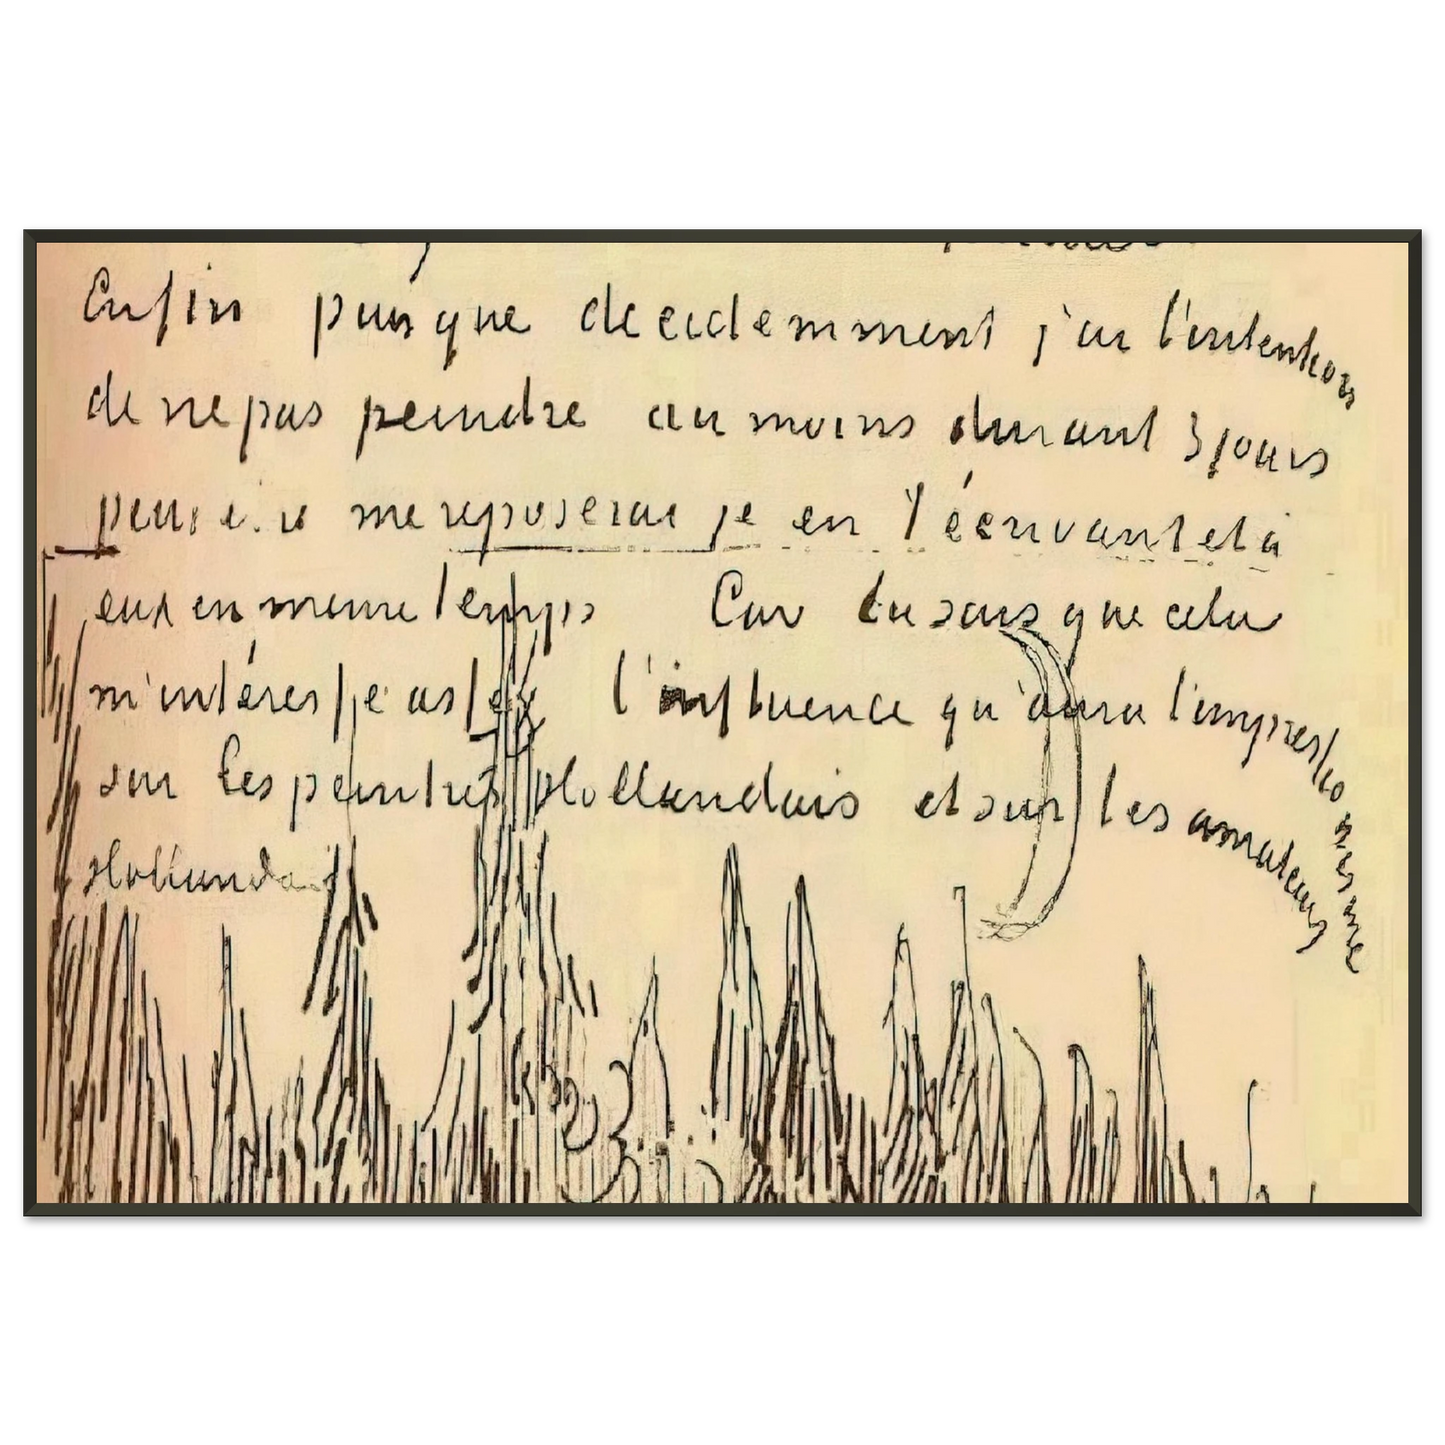 Enfin puisque decidemment j'ai l'intention
de ne pas peindre au moins durant 3 jours
me reposerai je en t'écrivant et à
eux en meme temps Car tu sais que cela
m'intéresse assez l'influence qu'aura l'impressionnisme
sur les peintres Hollandais et sur les amateurs
Hollandais